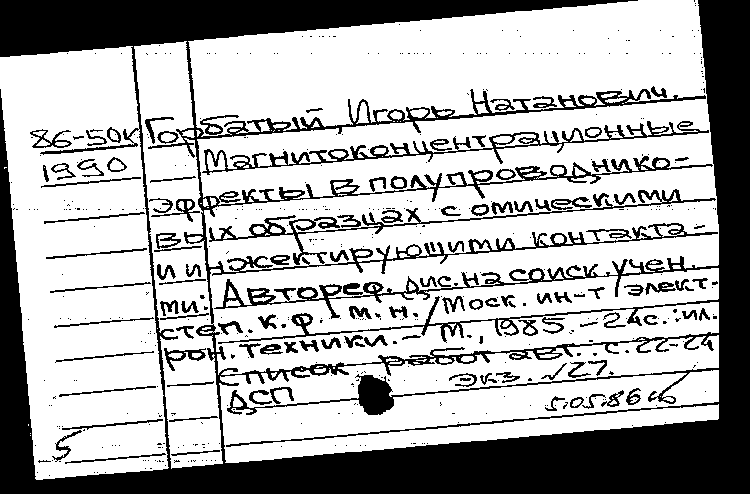 86-50к Горбатый, Игорь Натанович.
1990 Магнитоконцентрационные
эффекты в полупроводнико-
вых образцах с омическими
и инжектирующими контакта-
ми: Автореф. дис. на соиск. учен.
степ. к.ф.-м.н. / Моск. ин-т элект-
рон. техники. - М., 1985. - 24с. : ил.
Список работ авт.: с. 22-24
ДСП Экз. №27.
5.05.86
5